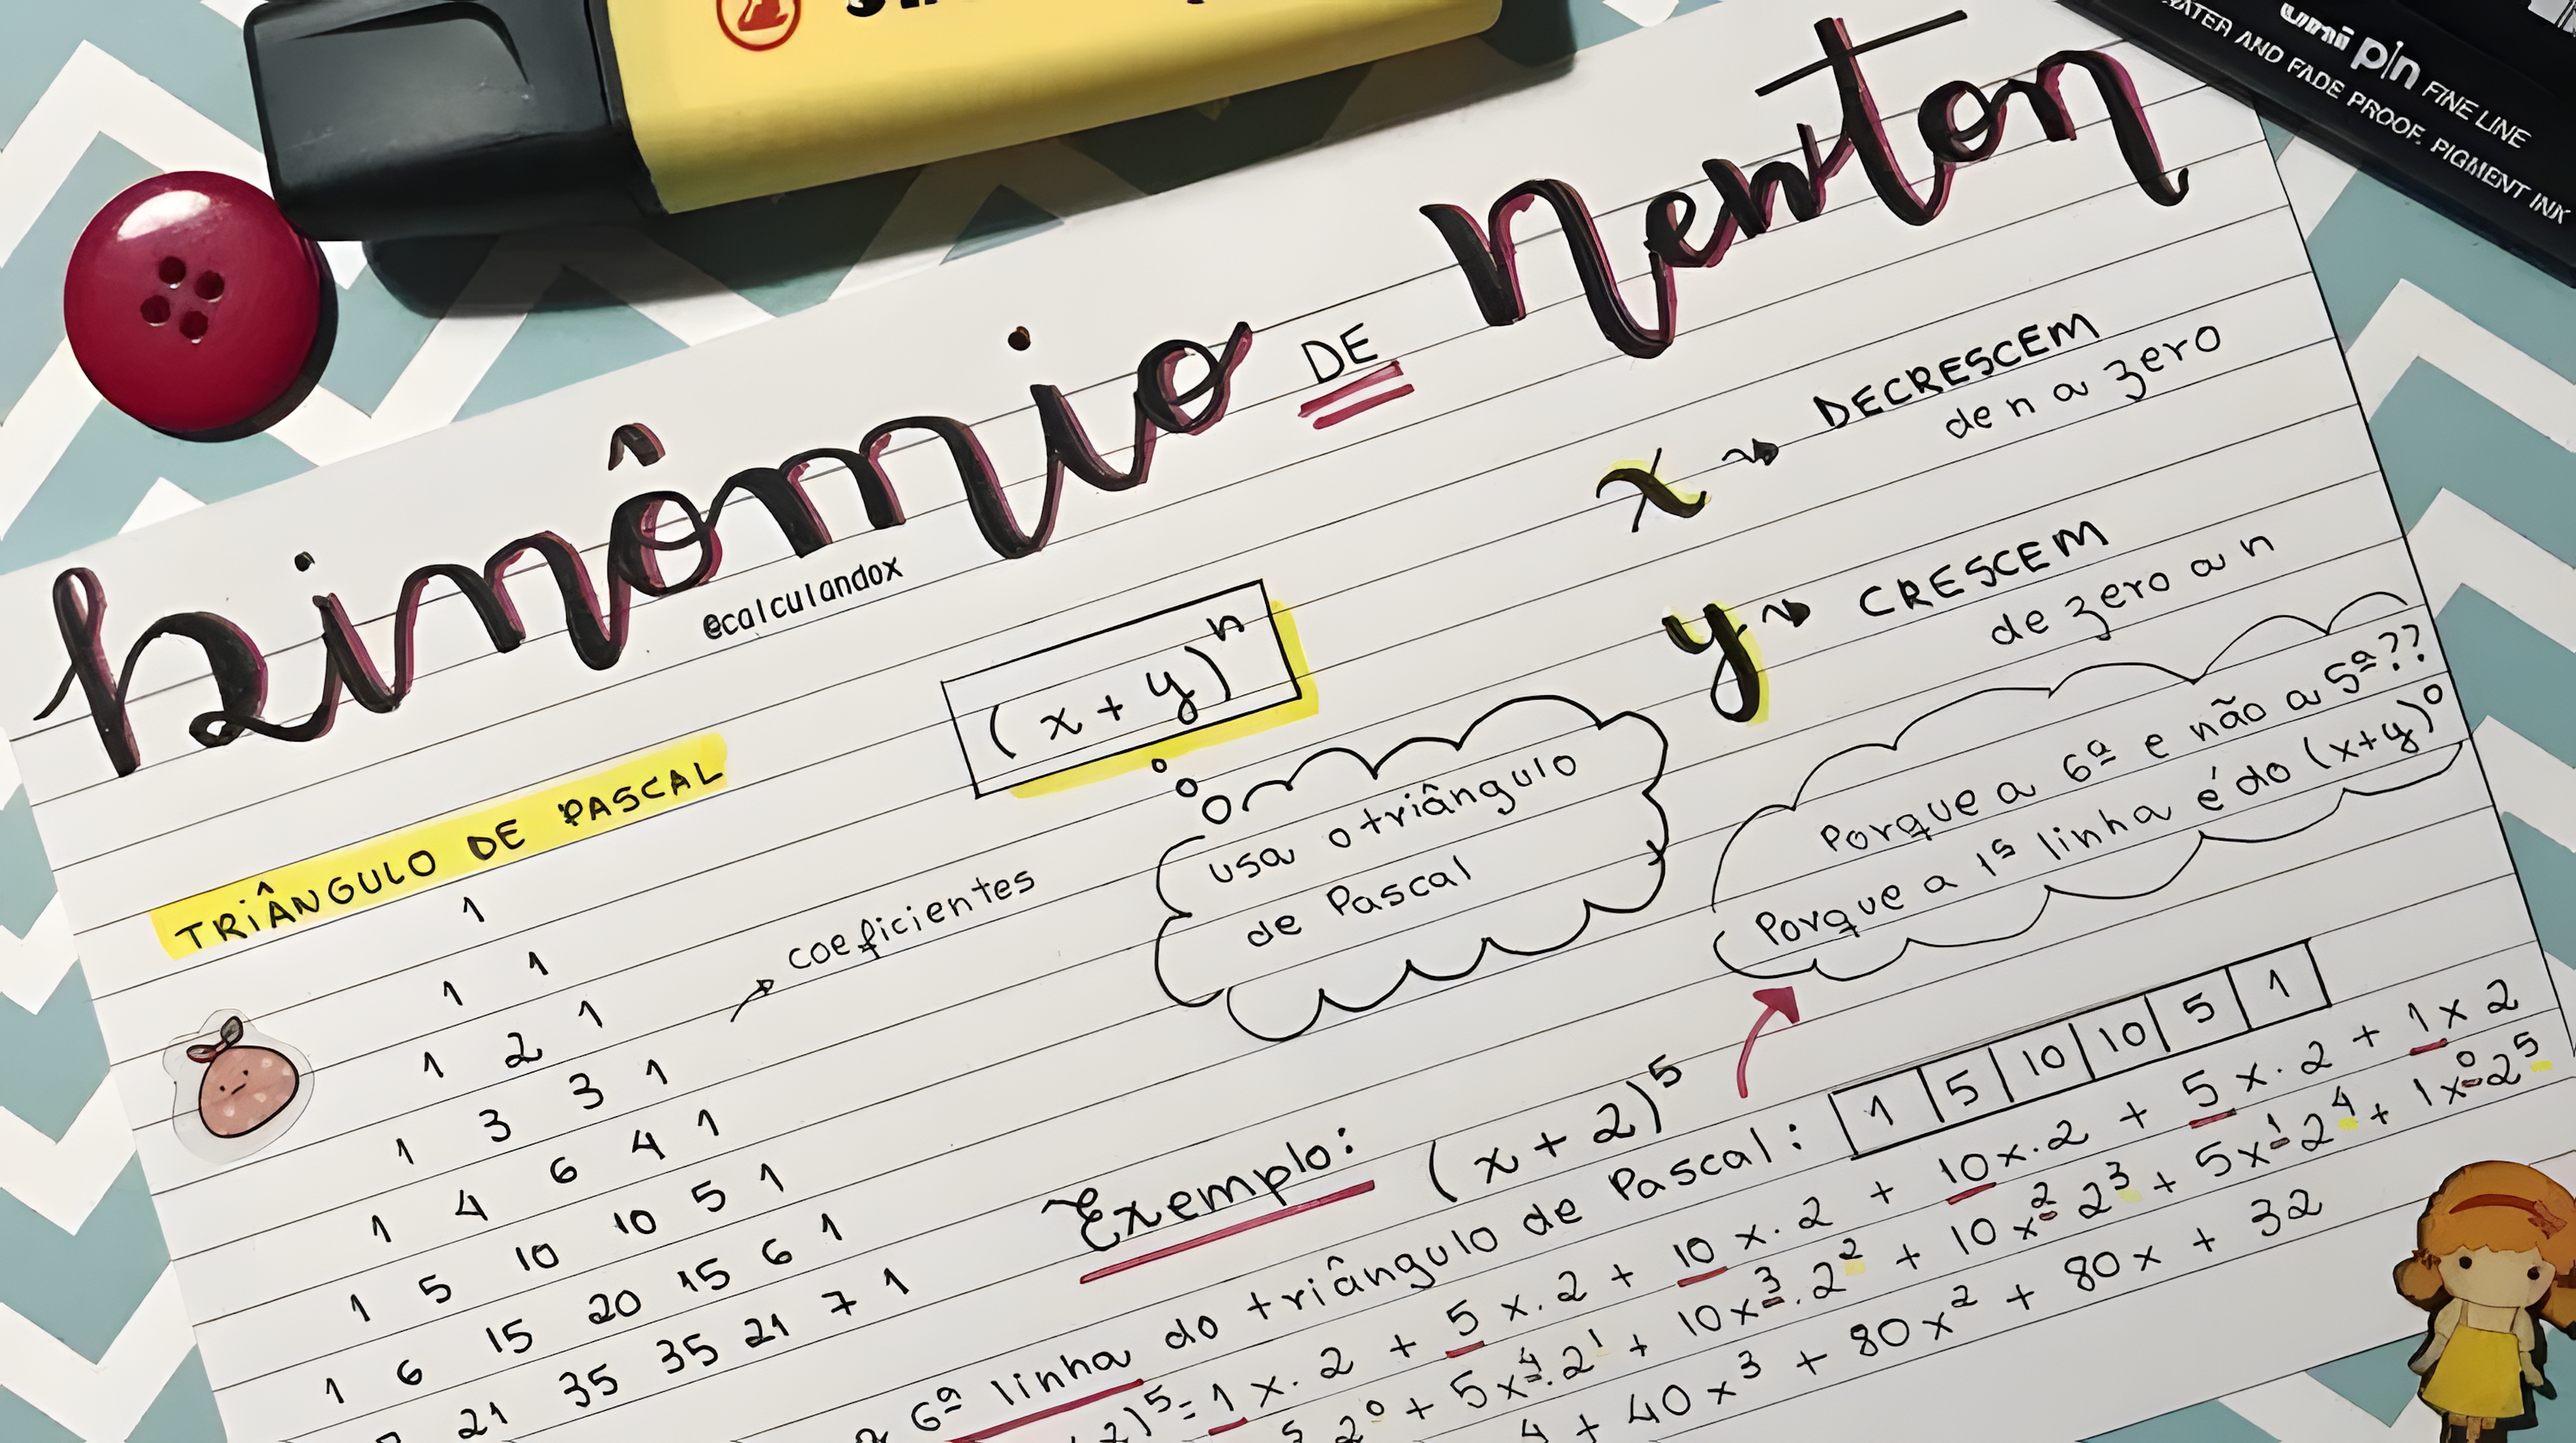 uni pin FINE LINE
WATER AND FADE PROOF. PIGMENT INK
binômio DE Newton
@calculandox
(x + y)^n
x → DECRESCEM
de n a zero
y → CRESCEM
de zero a n
TRIÂNGULO DE PASCAL
1
1 1
1 2 1
1 3 3 1
1 4 6 4 1
1 5 10 10 5 1
1 6 15 20 15 6 1
21 35 35 21 7 1
coeficientes
usa o triângulo
de Pascal
Porque a 6ª e não a 5ª??
Porque a 1ª linha é do (x+y)^0
Exemplo: (x + 2)^5
6ª linha do triângulo de Pascal: 1 5 10 10 5 1
2)^5 = 1x.2 + 5x.2 + 10x.2 + 10x.2 + 5x.2 + 1x2
5 2^0 + 5x^4.2^1 + 10x^3.2^2 + 10x^2 2^3 + 5x^1 2^4 + 1x^0 2^5
4 + 40x^3 + 80x^2 + 80x + 32